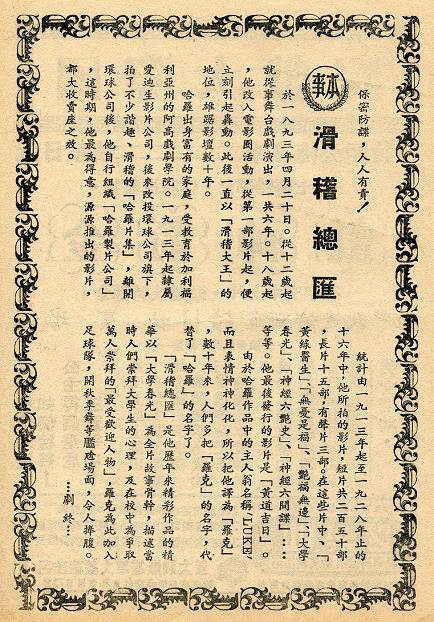 保密防諜，人人有責！
本事
滑稽總匯
於一八九三年四月二十日。從十二歲起
就從事舞台戲劇演出，一共六年。十八歲起
，他改入電影圈活動，從第一部影片起，便
立刻引起轟動。此後一直以「滑稽大王」的
地位，雄踞影壇數十年。
哈羅出身富有的家庭，受教育於加利福
利亞州的阿高戲劇學院。一九一三年起隸屬
愛迪生影片公司，後來改投環球公司旗下，
拍了不少諧趣、滑稽的「哈羅片集」，離開
環球公司後，他自行組織「哈羅製片公司」
，這時期，他最為得意，源源推出的影片，
都大收賣座之效。
統計由一九一三年起至一九二八年止的
十六年中，他所拍的影片，短片共二百五十部
，長片十五部，有聲片三部。在這些片中，「
黃綠醫生」、「無憂是福」、「艷福無邊」、「大學
春光」、「神經六艷史」、「神經六間諜」……
等等。他最後發行的影片是「黃道吉日」。
由於哈羅作品中的主人翁名稱「LUKE」
而且表情神神化化，所以把他譯為「羅克」
，數十年來，人們多把「羅克」的名字，代
替了「哈羅」的名字了。
「滑稽總匯」是他歷年來精彩作品的精
華以「大學春光」為全片故事骨幹，描述當
時人們崇拜大學生的心理，及在校中為爭取
萬人崇拜的「最受歡迎人物」，羅克為此加入
足球隊，開秋季舞等尷尬場面，令人捧腹。
…劇終…